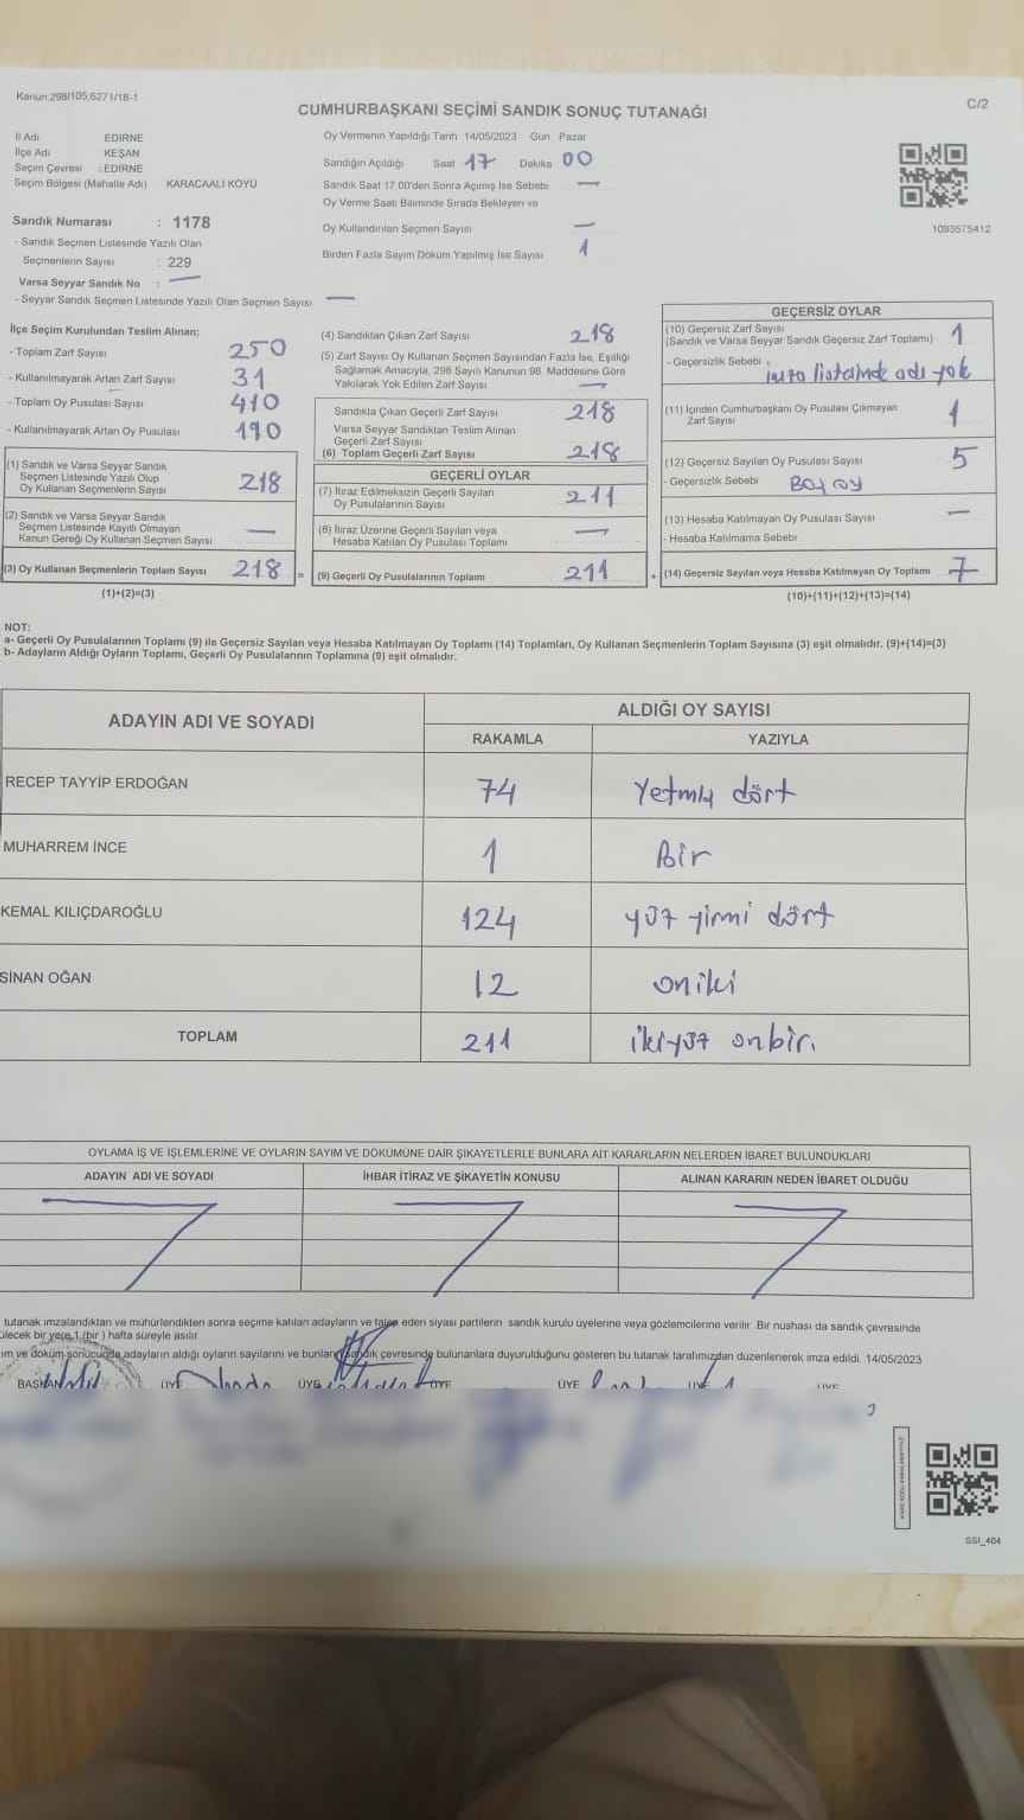 Kanun:298/105,6271/18-1
C/2
CUMHURBAŞKANI SEÇİMİ SANDIK SONUÇ TUTANAĞI
İl Adı EDİRNE
İlçe Adı KEŞAN
Seçim Çevresi : EDİRNE
Seçim Bölgesi (Mahalle Adı) KARACAALİ KÖYÜ
Oy Vermenin Yapıldığı Tarih 14/05/2023 Gün Pazar
Sandığın Açıldığı Saat 17 Dakika 00
Sandık Saat 17.00'den Sonra Açımış İse Sebebi —
Oy Verme Saati Bitiminde Sırada Bekleyen ve
Oy Kullandırılan Seçmen Sayısı —
Birden Fazla Sayım Döküm Yapılmış İse Sayısı 1
1093575412
Sandık Numarası : 1178
- Sandık Seçmen Listesinde Yazılı Olan
Seçmenlerin Sayısı : 229
Varsa Seyyar Sandık No : —
- Seyyar Sandık Seçmen Listesinde Yazılı Olan Seçmen Sayısı —
İlçe Seçim Kurulundan Teslim Alınan;
- Toplam Zarf Sayısı 250
- Kullanılmayarak Artan Zarf Sayısı 31
- Toplam Oy Pusulası Sayısı 410
- Kullanılmayarak Artan Oy Pusulası 190
(1) Sandık ve Varsa Seyyar Sandık
Seçmen Listesinde Yazılı Olup
Oy Kullanan Seçmenlerin Sayısı 218
(2) Sandık ve Varsa Seyyar Sandık
Seçmen Listesinde Kayıtlı Olmayan
Kanun Gereği Oy Kullanan Seçmen Sayısı —
(3) Oy Kullanan Seçmenlerin Toplam Sayısı 218
(1)+(2)=(3)
(4) Sandıktan Çıkan Zarf Sayısı 218
(5) Zarf Sayısı Oy Kullanan Seçmen Sayısından Fazla İse, Eşitliği
Sağlamak Amacıyla, 298 Sayılı Kanunun 98. Maddesine Göre
Yakılarak Yok Edilen Zarf Sayısı —
Sandıkta Çıkan Geçerli Zarf Sayısı 218
Varsa Seyyar Sandıktan Teslim Alınan
Geçerli Zarf Sayısı
(6) Toplam Geçerli Zarf Sayısı 218
GEÇERLİ OYLAR
(7) İtiraz Edilmeksizin Geçerli Sayılan
Oy Pusulalarının Sayısı 211
(8) İtiraz Üzerine Geçerli Sayılan veya
Hesaba Katılan Oy Pusulası Toplamı —
= (9) Geçerli Oy Pusulalarının Toplamı 211
GEÇERSİZ OYLAR
(10) Geçersiz Zarf Sayısı
(Sandık ve Varsa Seyyar Sandık Geçersiz Zarf Toplamı) 1
- Geçersizlik Sebebi : imza listesinde adı yok
(11) İçinden Cumhurbaşkanı Oy Pusulası Çıkmayan
Zarf Sayısı 1
(12) Geçersiz Sayılan Oy Pusulası Sayısı 5
- Geçersizlik Sebebi Boş oy
(13) Hesaba Katılmayan Oy Pusulası Sayısı —
- Hesaba Katılmama Sebebi
+ (14) Geçersiz Sayılan veya Hesaba Katılmayan Oy Toplamı 7
(10)+(11)+(12)+(13)=(14)
NOT:
a- Geçerli Oy Pusulalarının Toplamı (9) ile Geçersiz Sayılan veya Hesaba Katılmayan Oy Toplamı (14) Toplamları, Oy Kullanan Seçmenlerin Toplam Sayısına (3) eşit olmalıdır. (9)+(14)=(3)
b- Adayların Aldığı Oyların Toplamı, Geçerli Oy Pusulalarının Toplamına (9) eşit olmalıdır.
ADAYIN ADI VE SOYADI ALDIĞI OY SAYISI
RAKAMLA YAZIYLA
RECEP TAYYİP ERDOĞAN 74 Yetmiş dört
MUHARREM İNCE 1 Bir
KEMAL KILIÇDAROĞLU 124 yüz yirmi dört
SİNAN OĞAN 12 oniki
TOPLAM 211 ikiyüz onbir.
OYLAMA İŞ VE İŞLEMLERİNE VE OYLARIN SAYIM VE DÖKÜMÜNE DAİR ŞİKAYETLERLE BUNLARA AİT KARARLARIN NELERDEN İBARET BULUNDUKLARI
ADAYIN ADI VE SOYADI İHBAR İTİRAZ VE ŞİKAYETİN KONUSU ALINAN KARARIN NEDEN İBARET OLDUĞU
tutanak imzalandıktan ve mühürlendikten sonra seçime katılan adayların ve talep eden siyasi partilerin sandık kurulu üyelerine veya gözlemcilerine verilir. Bir nüshası da sandık çevresinde
ülecek bir yere 1 (bir) hafta süreyle asılır.
ım ve döküm sonucunda adayların aldığı oyların sayılarını ve bunların sandık çevresinde bulunanlara duyurulduğunu gösteren bu tutanak tarafımızdan düzenlenerek imza edildi. 14/05/2023
BAŞKAN ÜYE ÜYE ÜYE ÜYE ÜYE ÜYE
SSI_404